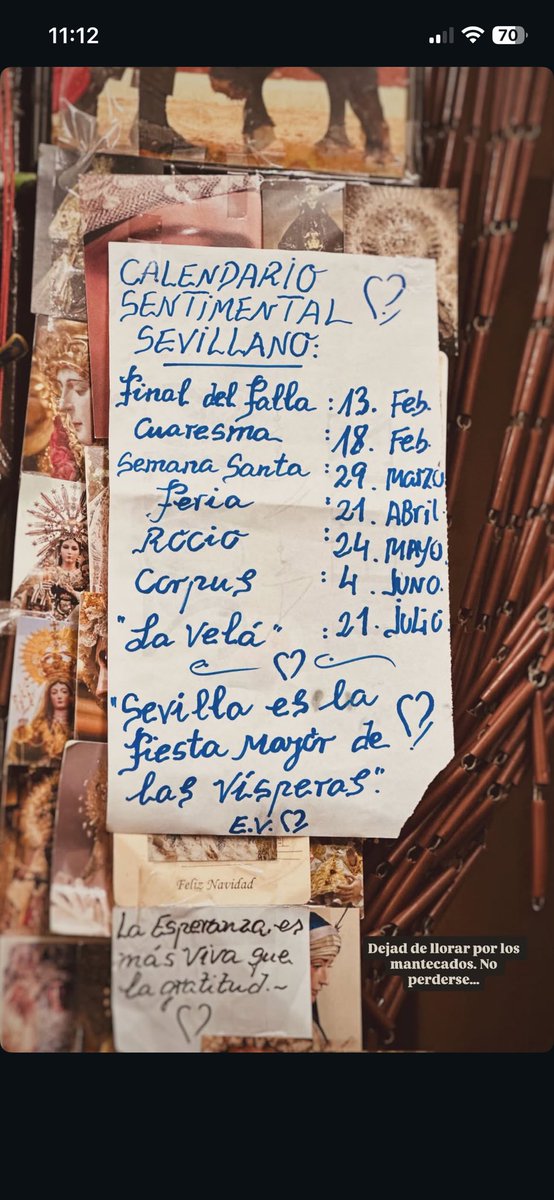 11:12
70
CALENDARIO
SENTIMENTAL
SEVILLANO:
Final del Falla : 13. Feb.
Cuaresma : 18. Feb.
Semana Santa : 29. Marzo
Feria : 21. Abril
Rocio : 24. Mayo
Corpus : 4. Juno.
"La Velá" : 21. Julio.
"Sevilla es la
fiesta Mayor de
las vísperas".
E.V.
Feliz Navidad
La Esperanza, es
más viva que
la gratitud.~
Dejad de llorar por los
mantecados. No
perderse...